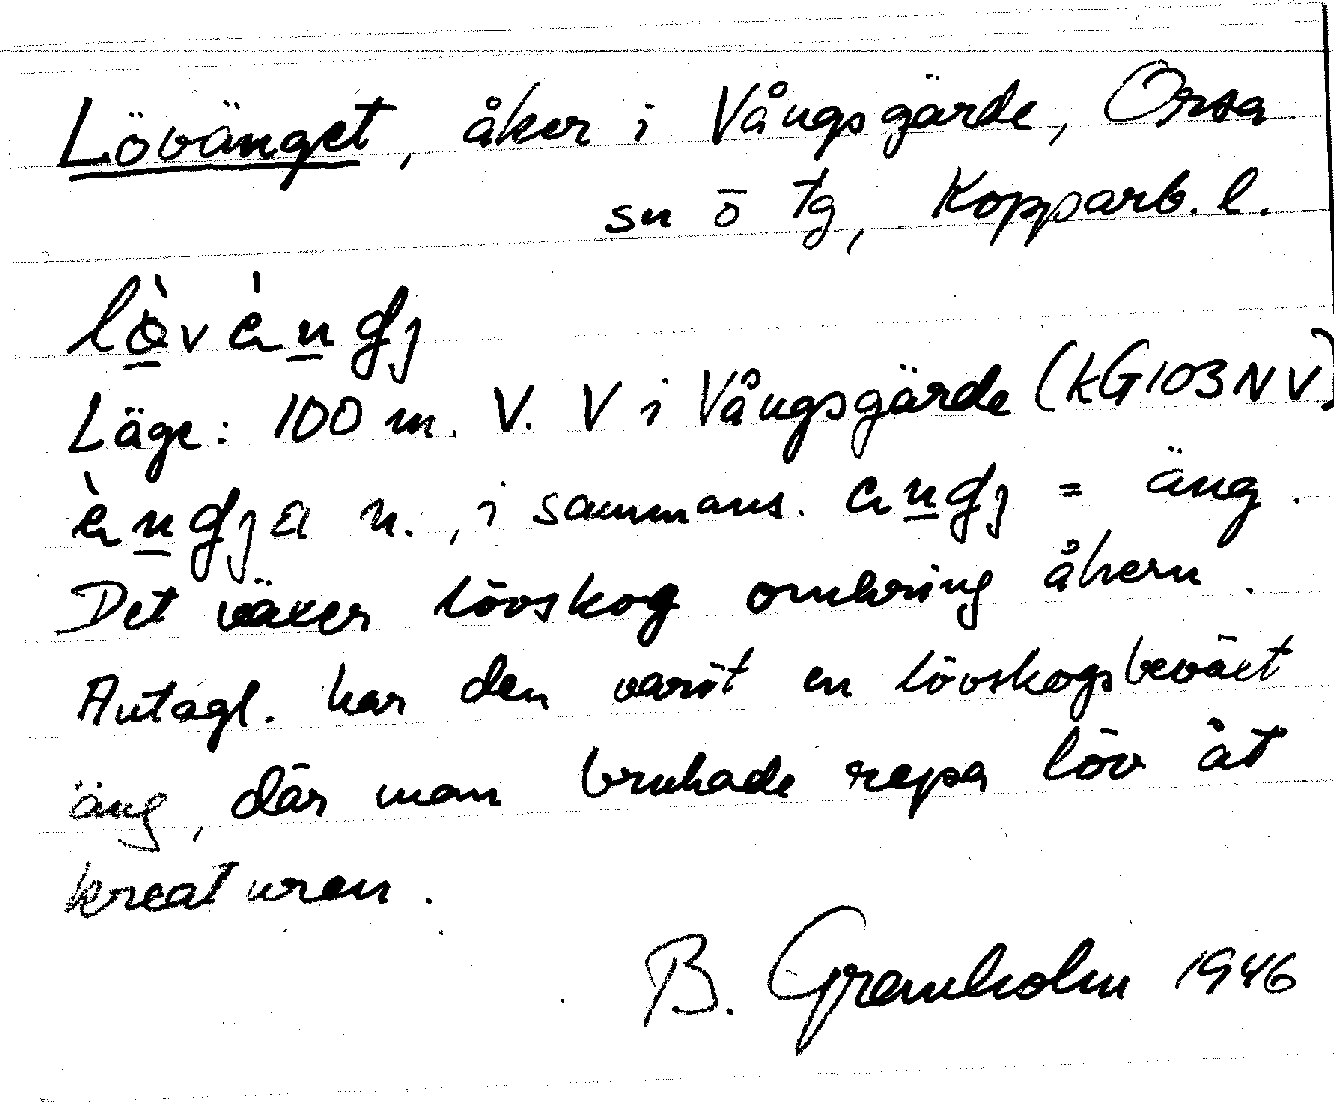 Lövänget, åker i Vångsgärde, Orsa
sn o tg, Kopparb. l.
lövängj
Läge: 100 m. V. V i Vångsgärde (kG103NV)
ängja n., i sammans. ängj = äng.
Det växer lövskog omkring åkern.
Antagl. har den varit en lövskogsbeväxt
äng, där man brukade repa löv åt
kreaturen.
B. Gramholm 1946